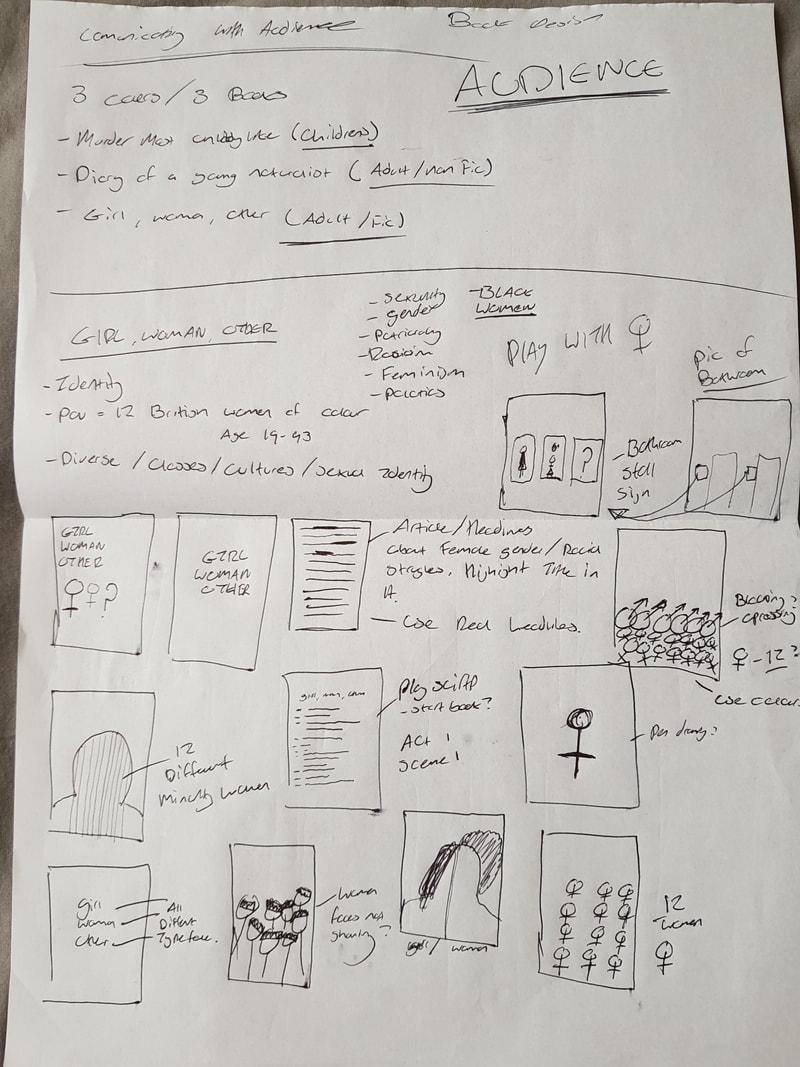 Comunicating with Audience
Book Design
AUDIENCE
3 covers / 3 Books
- Murder Most unladylike (Childrens)
- Diary of a young naturalist (Adult/non Fic)
- Girl, woman, other (Adult/Fic)
GIRL, WOMAN, OTHER
- Identity
- POV = 12 British women of colour
Age 19-93
- Diverse / Classes / Cultures / Sexual Identity
- Sexuality
- gender
- Patriarchy
- Racism
- Feminism
- Politics
- BLACK
Women
PLAY WITH ♀
Pic of
Bathroom
?
- Bathroom
stall
sign
GIRL
WOMAN
OTHER
♀♀?
GIRL
WOMAN
OTHER
- Article/Headlines
about Female gender/Racial
strugles. Highlight Title in
it.
- Use Real headlines.
Blocking?
opressing?
♀ - 12?
Use colour
12
Different
Minority women
Play script
- start book?
ACT 1
Scene 1
Pen drawing?
girl
woman
other
All
Different
Typeface.
Women
faces not
showing?
girl / woman
12
women
♀